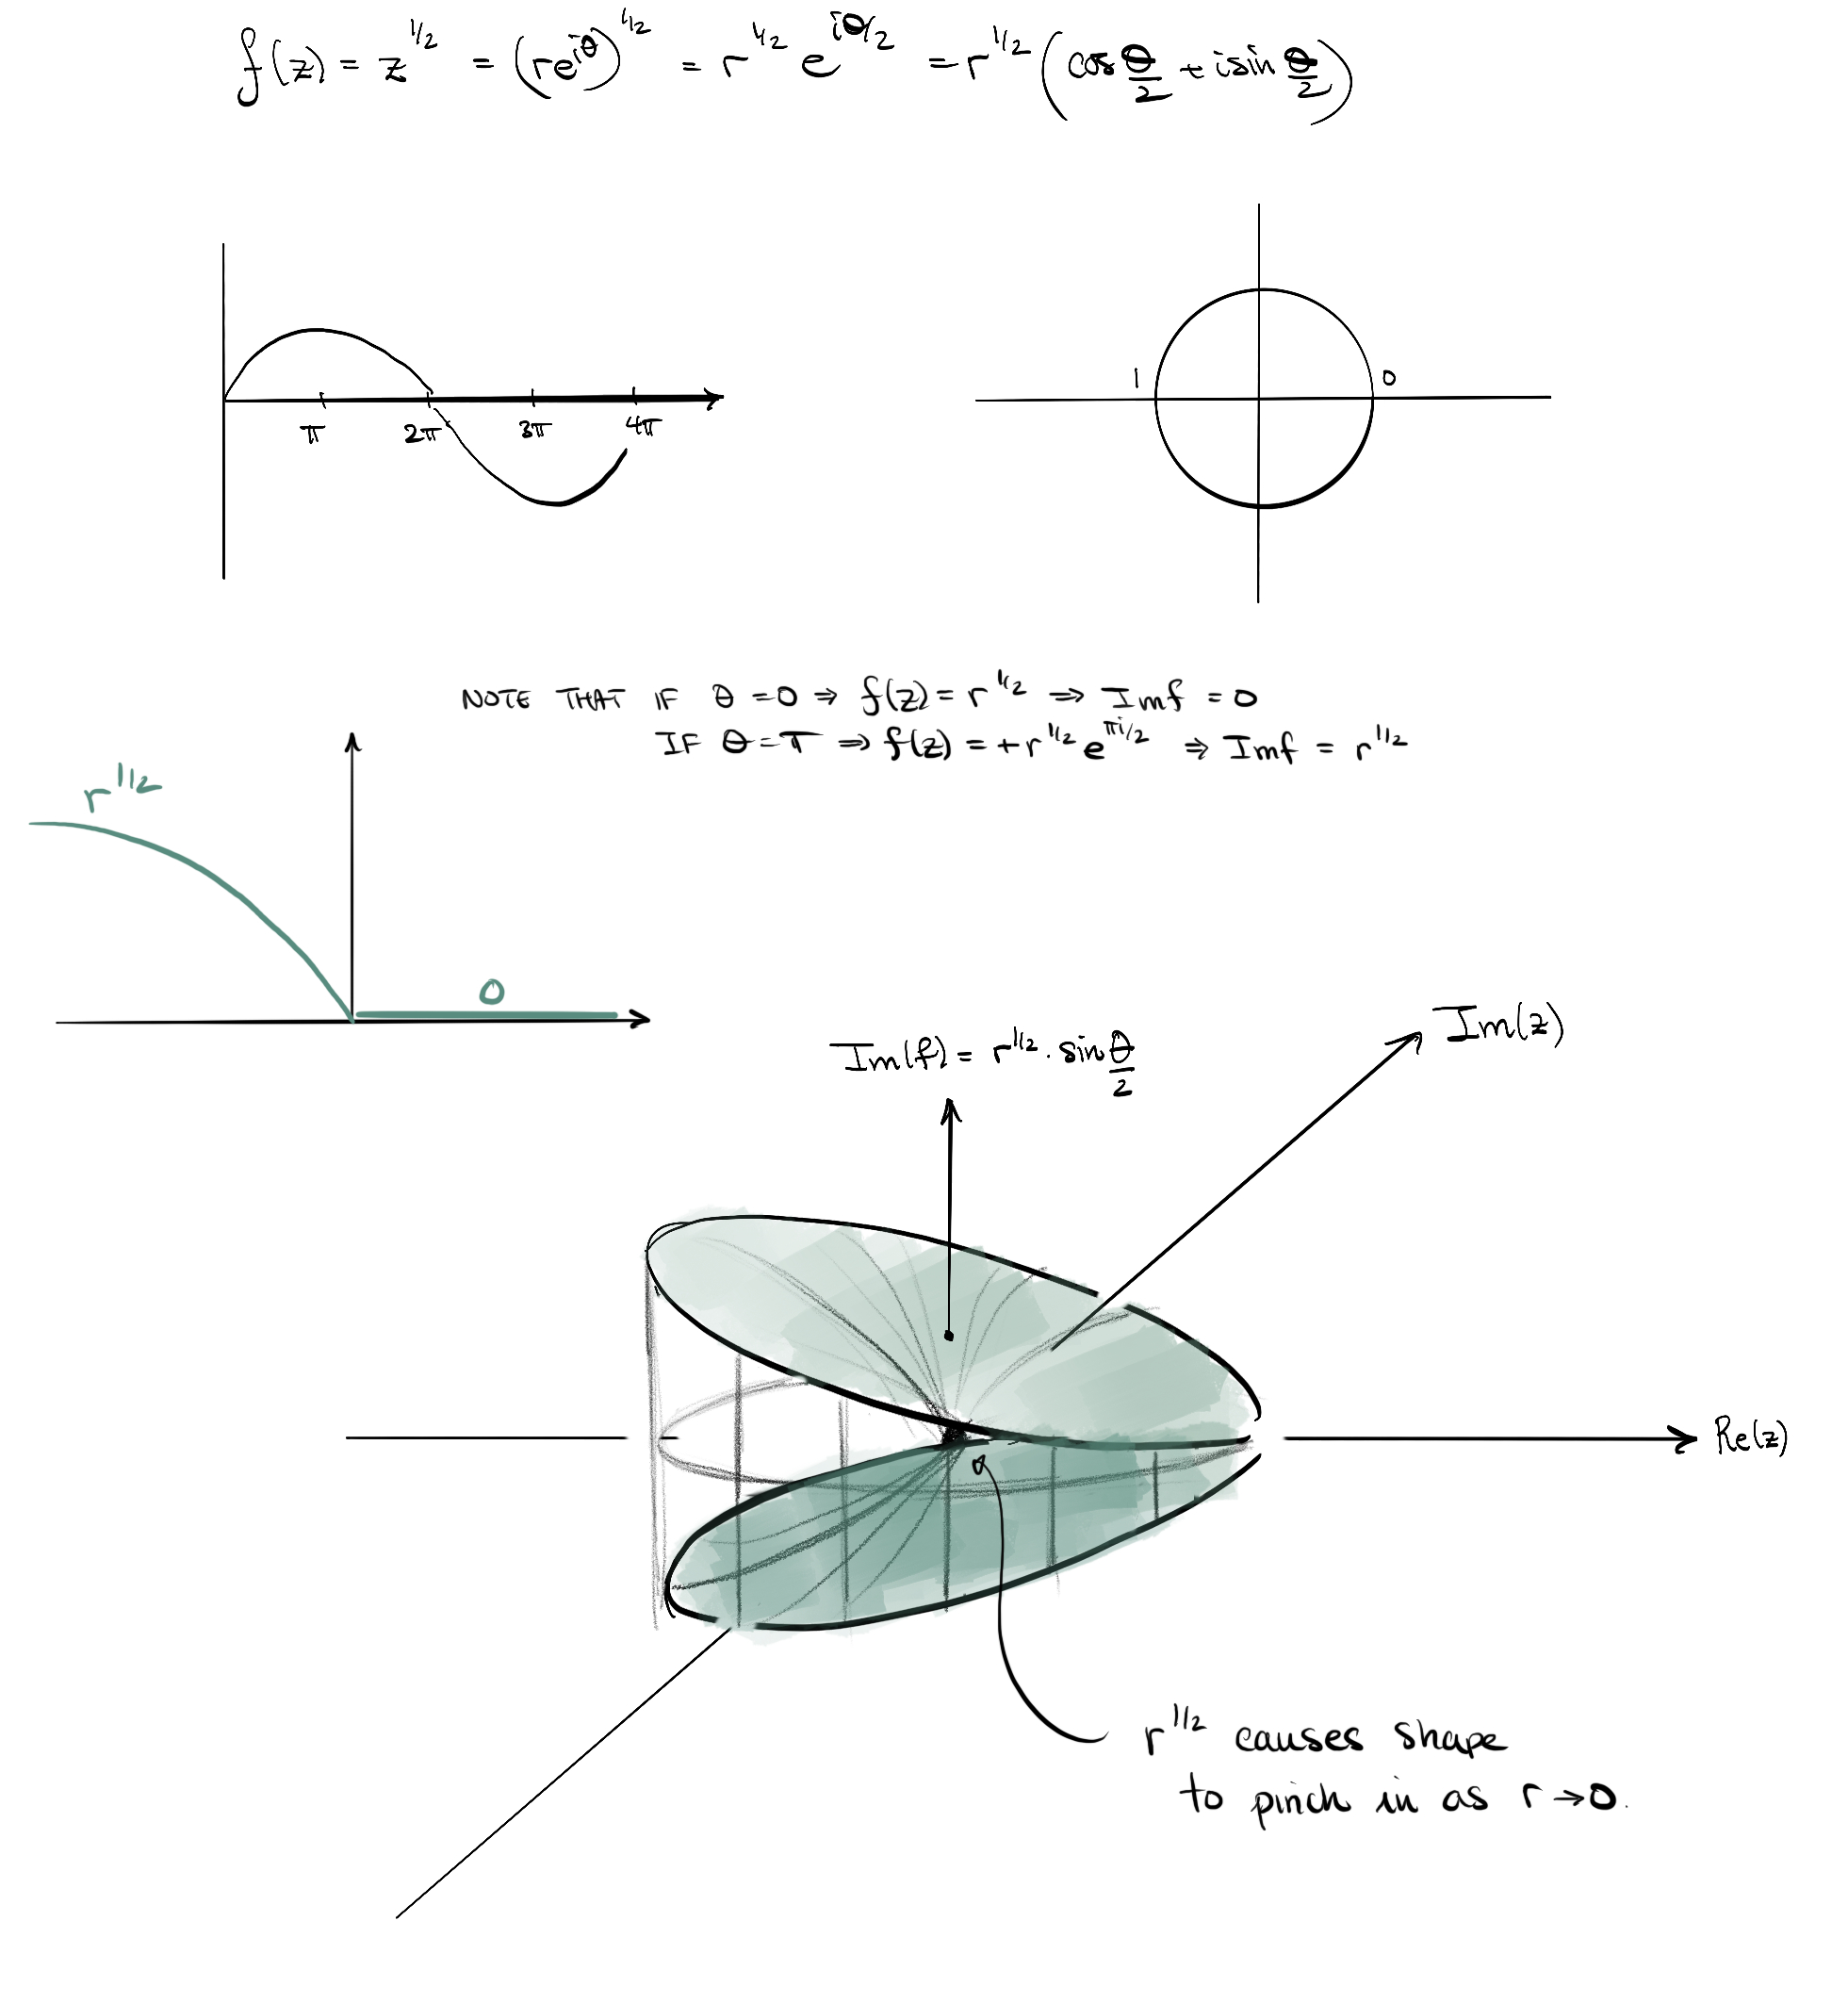 f(z) = z^{1/2} = (re^{iθ})^{1/2} = r^{1/2} e^{iθ/2} = r^{1/2} (cos θ/2 + i sin θ/2)
π 2π 3π 4π
1 0
NOTE THAT IF θ = 0 ⇒ f(z) = r^{1/2} ⇒ Im f = 0
IF θ = π ⇒ f(z) = + r^{1/2} e^{πi/2} ⇒ Im f = r^{1/2}
r^{1/2}
0
Im(f) = r^{1/2} · sin θ/2
Im(z)
Re(z)
r^{1/2} causes shape
to pinch in as r → 0.